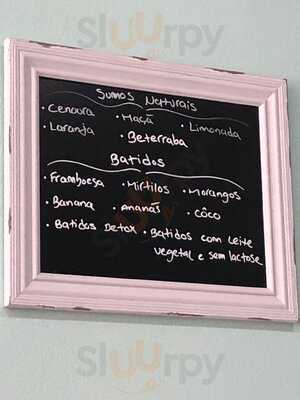 Sluurpy
Sumos Naturais
• Cenoura • Maçã • Limonada
• Laranja • Beterraba
Batidos
• Framboesa • Mirtilos • Morangos
• Banana • Ananás • Côco
• Batidos Detox • Batidos com leite
vegetal e sem lactose
Sluurpy